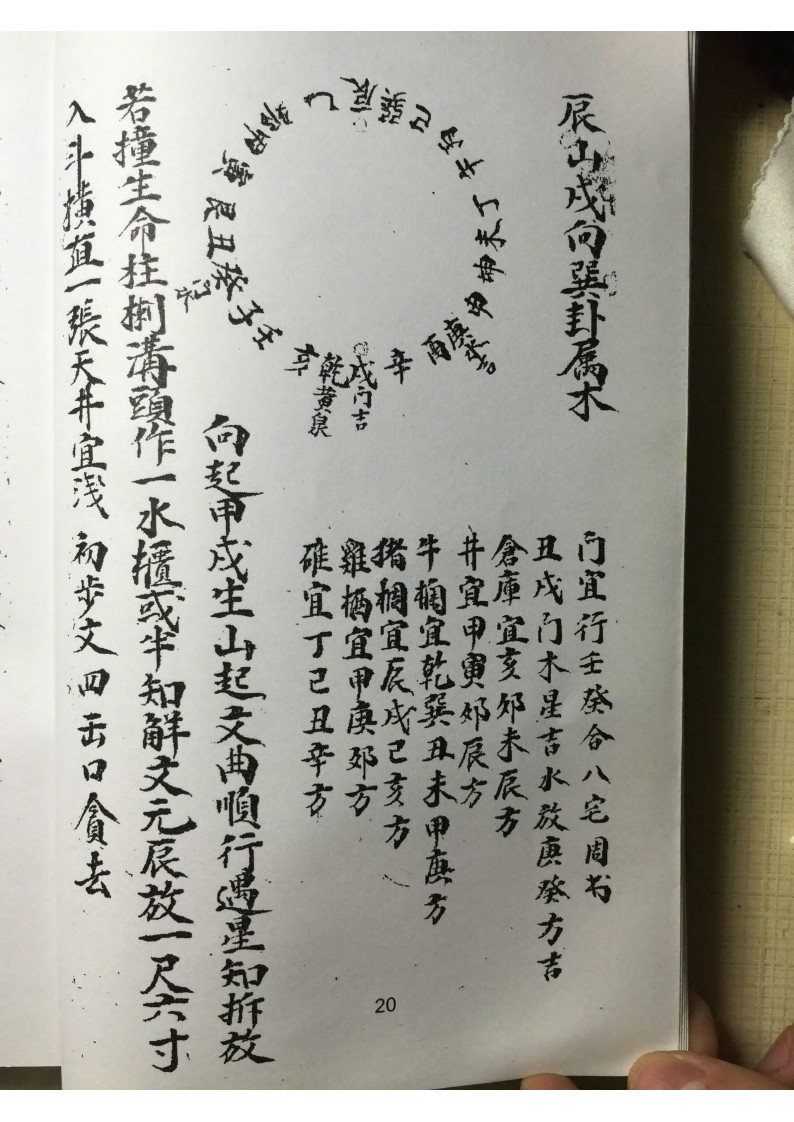 辰山戌向巽卦属木
巽辰乙
夘甲寅艮丑癸子壬
亥乾黄泉
戌门吉
辛
酉庚水吉
申坤未丁
午丙巳
门宜行壬癸合八宅周书
丑戌门木星吉水放庚癸方吉
倉庫宜亥夘未辰方
井宜甲寅夘辰方
牛欄宜乾巽丑未甲庚方
猪欄宜辰戌己亥方
雞栖宜甲庚夘方
碓宜丁己丑辛方
向起甲戌生山起文曲順行遇星知拆放
若撞生命柱捌溝頭作一水櫃或半知解文元辰放一尺六寸
入斗横直一張天井宜浅初步文四击口貪去
20